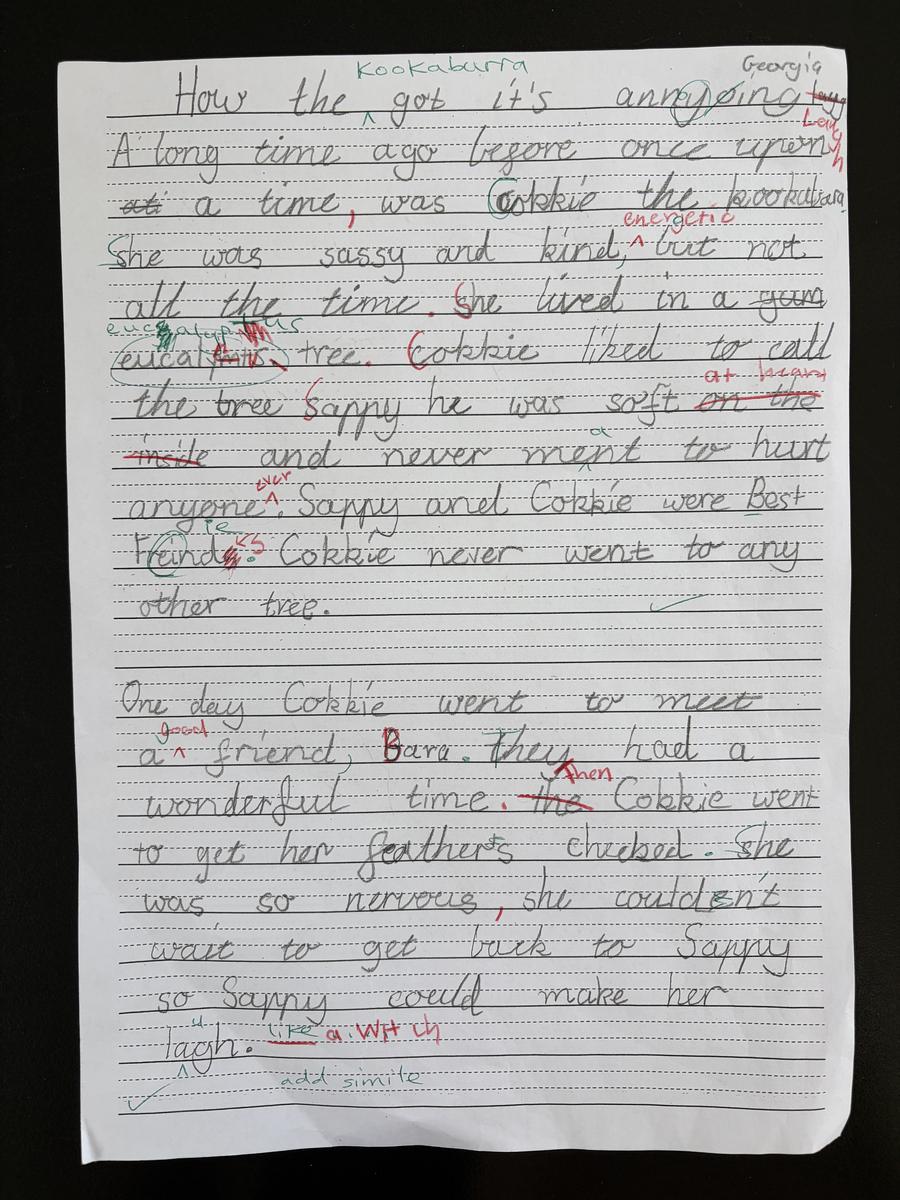 Kookaburra Georgia
How the ^ got it's annyoing
Laugh
A long time ago before once upon
a time, was Cokkie the kookabara
energetic
She was sassy and kind, ^ but not
all the time. She lived in a gum
eucalyptus
tree. Cokkie liked to call
at heart
the tree Sappy he was soft on the
a
inside and never ment to hurt
ever
anyone ^. Sappy and Cokkie were Best
ie s
Freinds. Cokkie never went to any
other tree.
One day Cokkie went to meet
good
a ^ friend, Bara. they had a
then
wonderful time. the Cokkie went
to get her feathers checked. She
was so nervous, she couldn't
wait to get back to Sappy
so Sappy could make her
u
lagh. like a witch
^ add simile